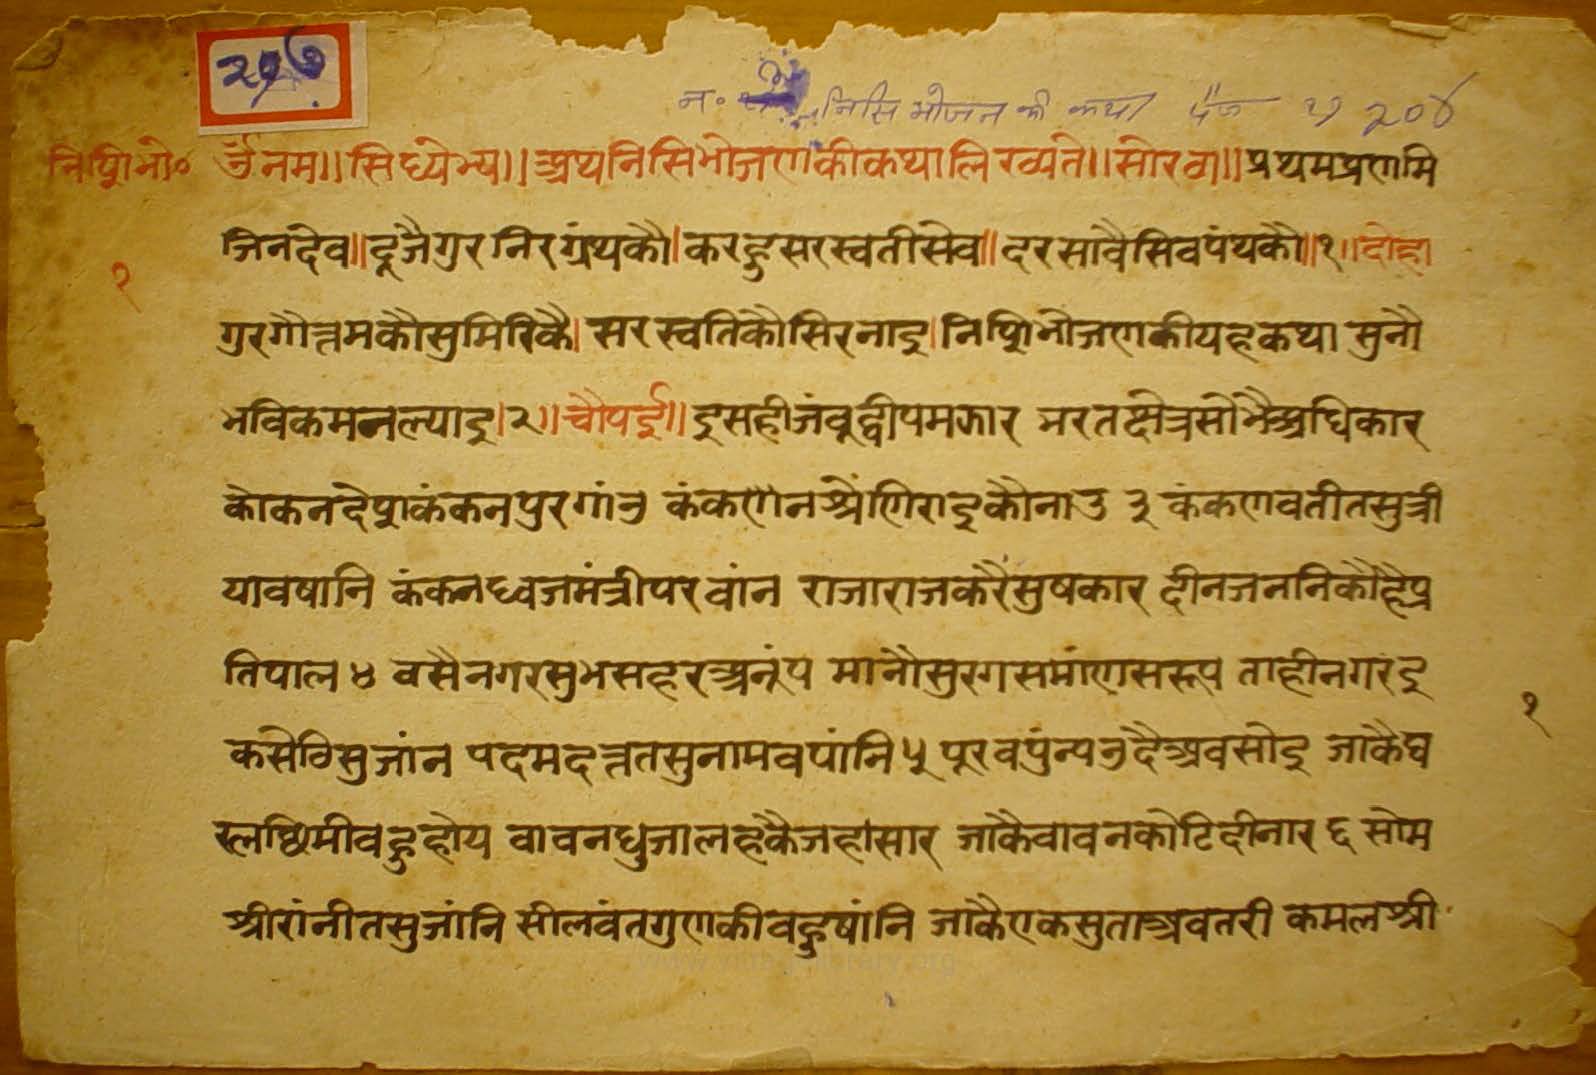 २१७
न० निसि भोजन की कथा पेज १७ २०४
निशिभो० ॐनमः।।सिध्येभ्य।।अथनिसिभोजणकीकथालिख्यते।।सोरठा।।प्रथमप्रणमि
जिनदेव॥दूजैगुरनिरग्रंथकौ।करहुसरस्वतीसेव॥दरसावैसिवपंथकौ॥१॥दोहा
१
गुरगौत्तमकौसुमिरिकै।सरस्वतिकौसिरनाइ।निशिभोजणकीयहकथा सुनौ
भविकमनल्याइ।२॥चौपई॥इसहीजंबूद्वीपमझार भरतक्षेत्रसोभैअधिकार
कोकनदेशकंकनपुरगांउ कंकणेनश्रेणिराइकौनाउ ३ कंकणवतीतसुत्री
यावषानि कंकनध्वजमंत्रीपरवांन राजाराजकरैसुषकार दीनजननिकौहैप्र
तिपाल ४ वसैनगरसुभसहरअनूंप मानौसुरगसमांणसरूप ताहीनगरइ
१
कसेठिसुजांन पदमदत्ततसुनामवषांनि ५ पूरवपुंन्यउदैअवसोइ जाकैघ
रलछिमीवहुहोय वावनधुजालहकैजहांसार जाकैवावनकोटिदीनार ६ सोम
श्रीरांनीतसुजांनि सीलवंतगुणकीवहुषांनि जाकैएकसुताअवतरी कमलश्री